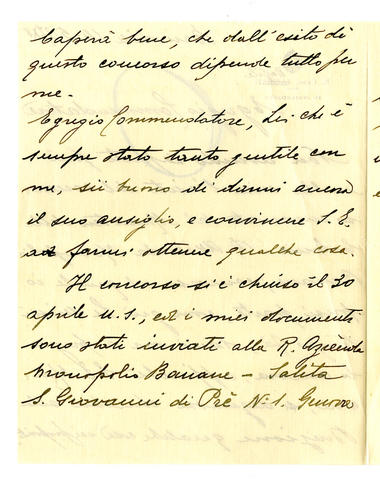 Capirà bene, che dall'esito di
questo concorso dipende tutto per
me.
Egregio Commendatore, Lei che è
sempre stato tanto gentile con
me, sii buono di darmi ancora
il suo ausiglio, e convincere S. E.
a farmi ottenere qualche cosa.
Il concorso si è chiuso il 30
aprile u. s., ed i miei documenti
sono stati inviati alla R. Azienda
Monopolio Banane - Salita
S. Giovanni di Prè N. 1. Genova